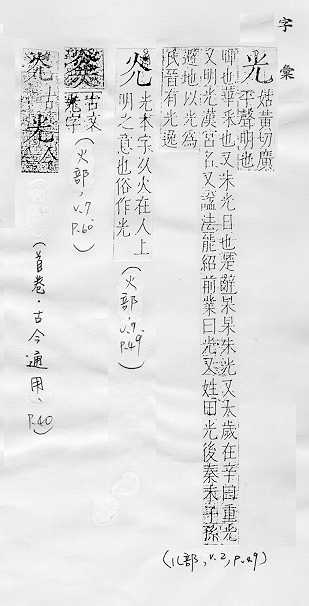 字彙
光 姑黃切廣
平聲明也
暉也華采也又朱光日也楚辭杲杲朱光又太歲在辛曰重光
又明光漢宮名又謚法能紹前業曰光又姓田光後秦末子孫
避地以光為
氏晉有光逸
(儿部, v.2, p.49)
灮 光本字从火在人上
明之意也俗作光
(火部, v.7, p.49)
古文
光字
(火部, v.7, p.60)
古 光 今
(首卷·古今通用, p.40)